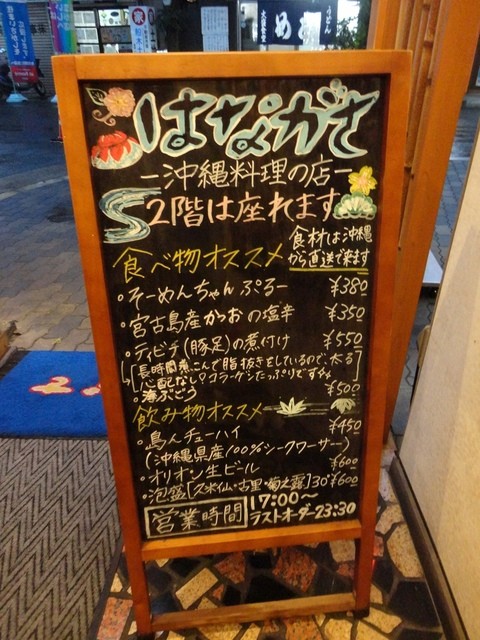 はながさ
ー沖縄料理の店ー
2階は座れます
食べ物オススメ
食材は沖縄
から直送で来ます
・そーめんちゃんぷるー ¥380
・宮古島産かつおの塩辛 ¥350
・テイビチ(豚足)の煮付け ¥550
[長時間煮こんで脂抜きをしているので、太る
心配なし♀コラーゲンたっぷりです]
・海ぶどう ¥500
飲み物オススメ
・島んチューハイ ¥450
(沖縄県産100%シークワーサー)
・オリオン生ビール ¥600
・泡盛[久米仙・古里・菊之露]30° ¥600
営業時間
17:00〜
ラストオーダー23:30
うどん